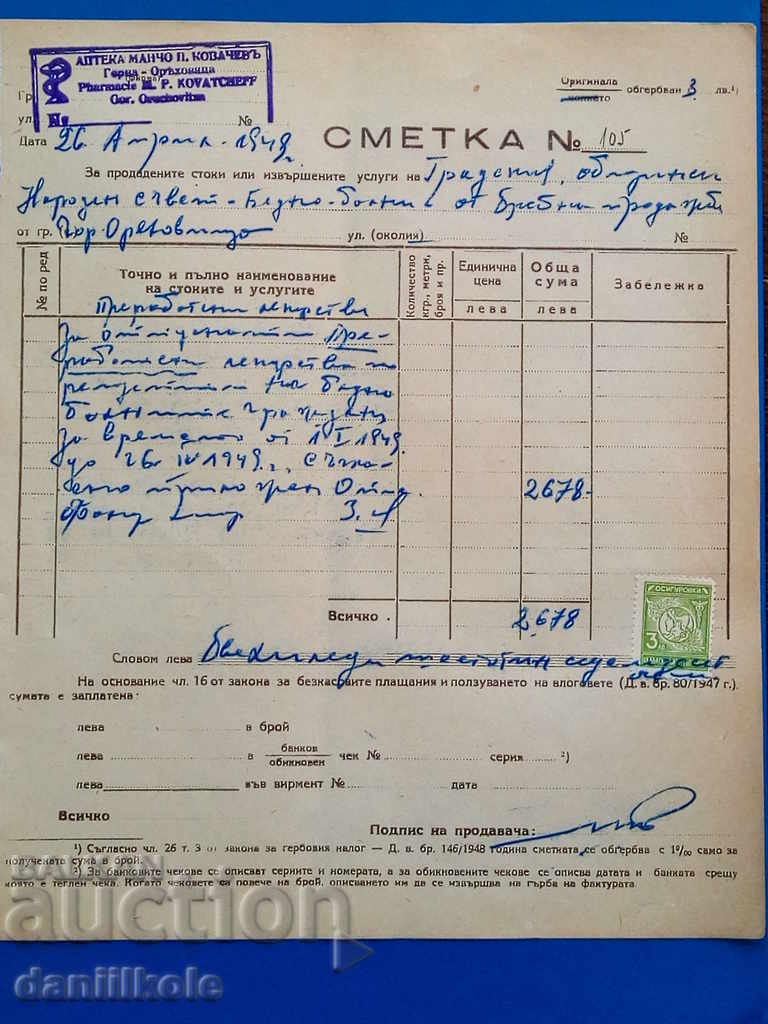 АПТЕКА МАНЧО П. КОВАЧЕВЪ
Горна - Орѣховица
Pharmacie M. P. KOVATCHEFF
Gor. Orechovitza
№
Гр.
ул. №
Оригинала
копието обгербван 3 лв.¹)
Дата 26. Април. 1949 г.
СМЕТКА № 105
За продадените стоки или извършените услуги на Градския, общински
Народен съвет - Бедно-болни от
от гр. Гор. Ореховица ул. (околия) №
№ по ред
Точно и пълно наименование на стоките и услугите
Количество кгр., метри, броя и пр.
Единична цена
лева
Обща сума
лева
Забележка
Преработени лекарства
За отпуснати Пре-
работени лекарства по
рецепти на бедно
болните граждани
за времето от 1 I 1949
до 26. IV 1949 г.,
2678-
Всичко 2678
ОСИГУРОВКИ
3
Словом лева две хиляди шестстотин седемдесет осем
На основание чл. 16 от закона за безкасовите плащания и ползуването на влоговете (Д. в. бр. 80/1947 г.)
сумата е заплатена:
лева в брой
лева в банков обикновен чек № серия ²)
лева във вирмент № дата
Всичко
Подпис на продавача:
¹) Съгласно чл. 26 т. 3 от закона за гербовия налог — Д. в. бр. 146/1948 година сметката се обгербва с 1⁰/₀₀ само за
получената сума в брой.
²) За банковите чекове се описват сериите и номерата, а за обикновените чекове се описва датата и банката срещу
която е теглен чека. Когато чековете са повече на брой, описването им да се извършва на гърба на фактурата.
BALKAN
auction
daniilkole